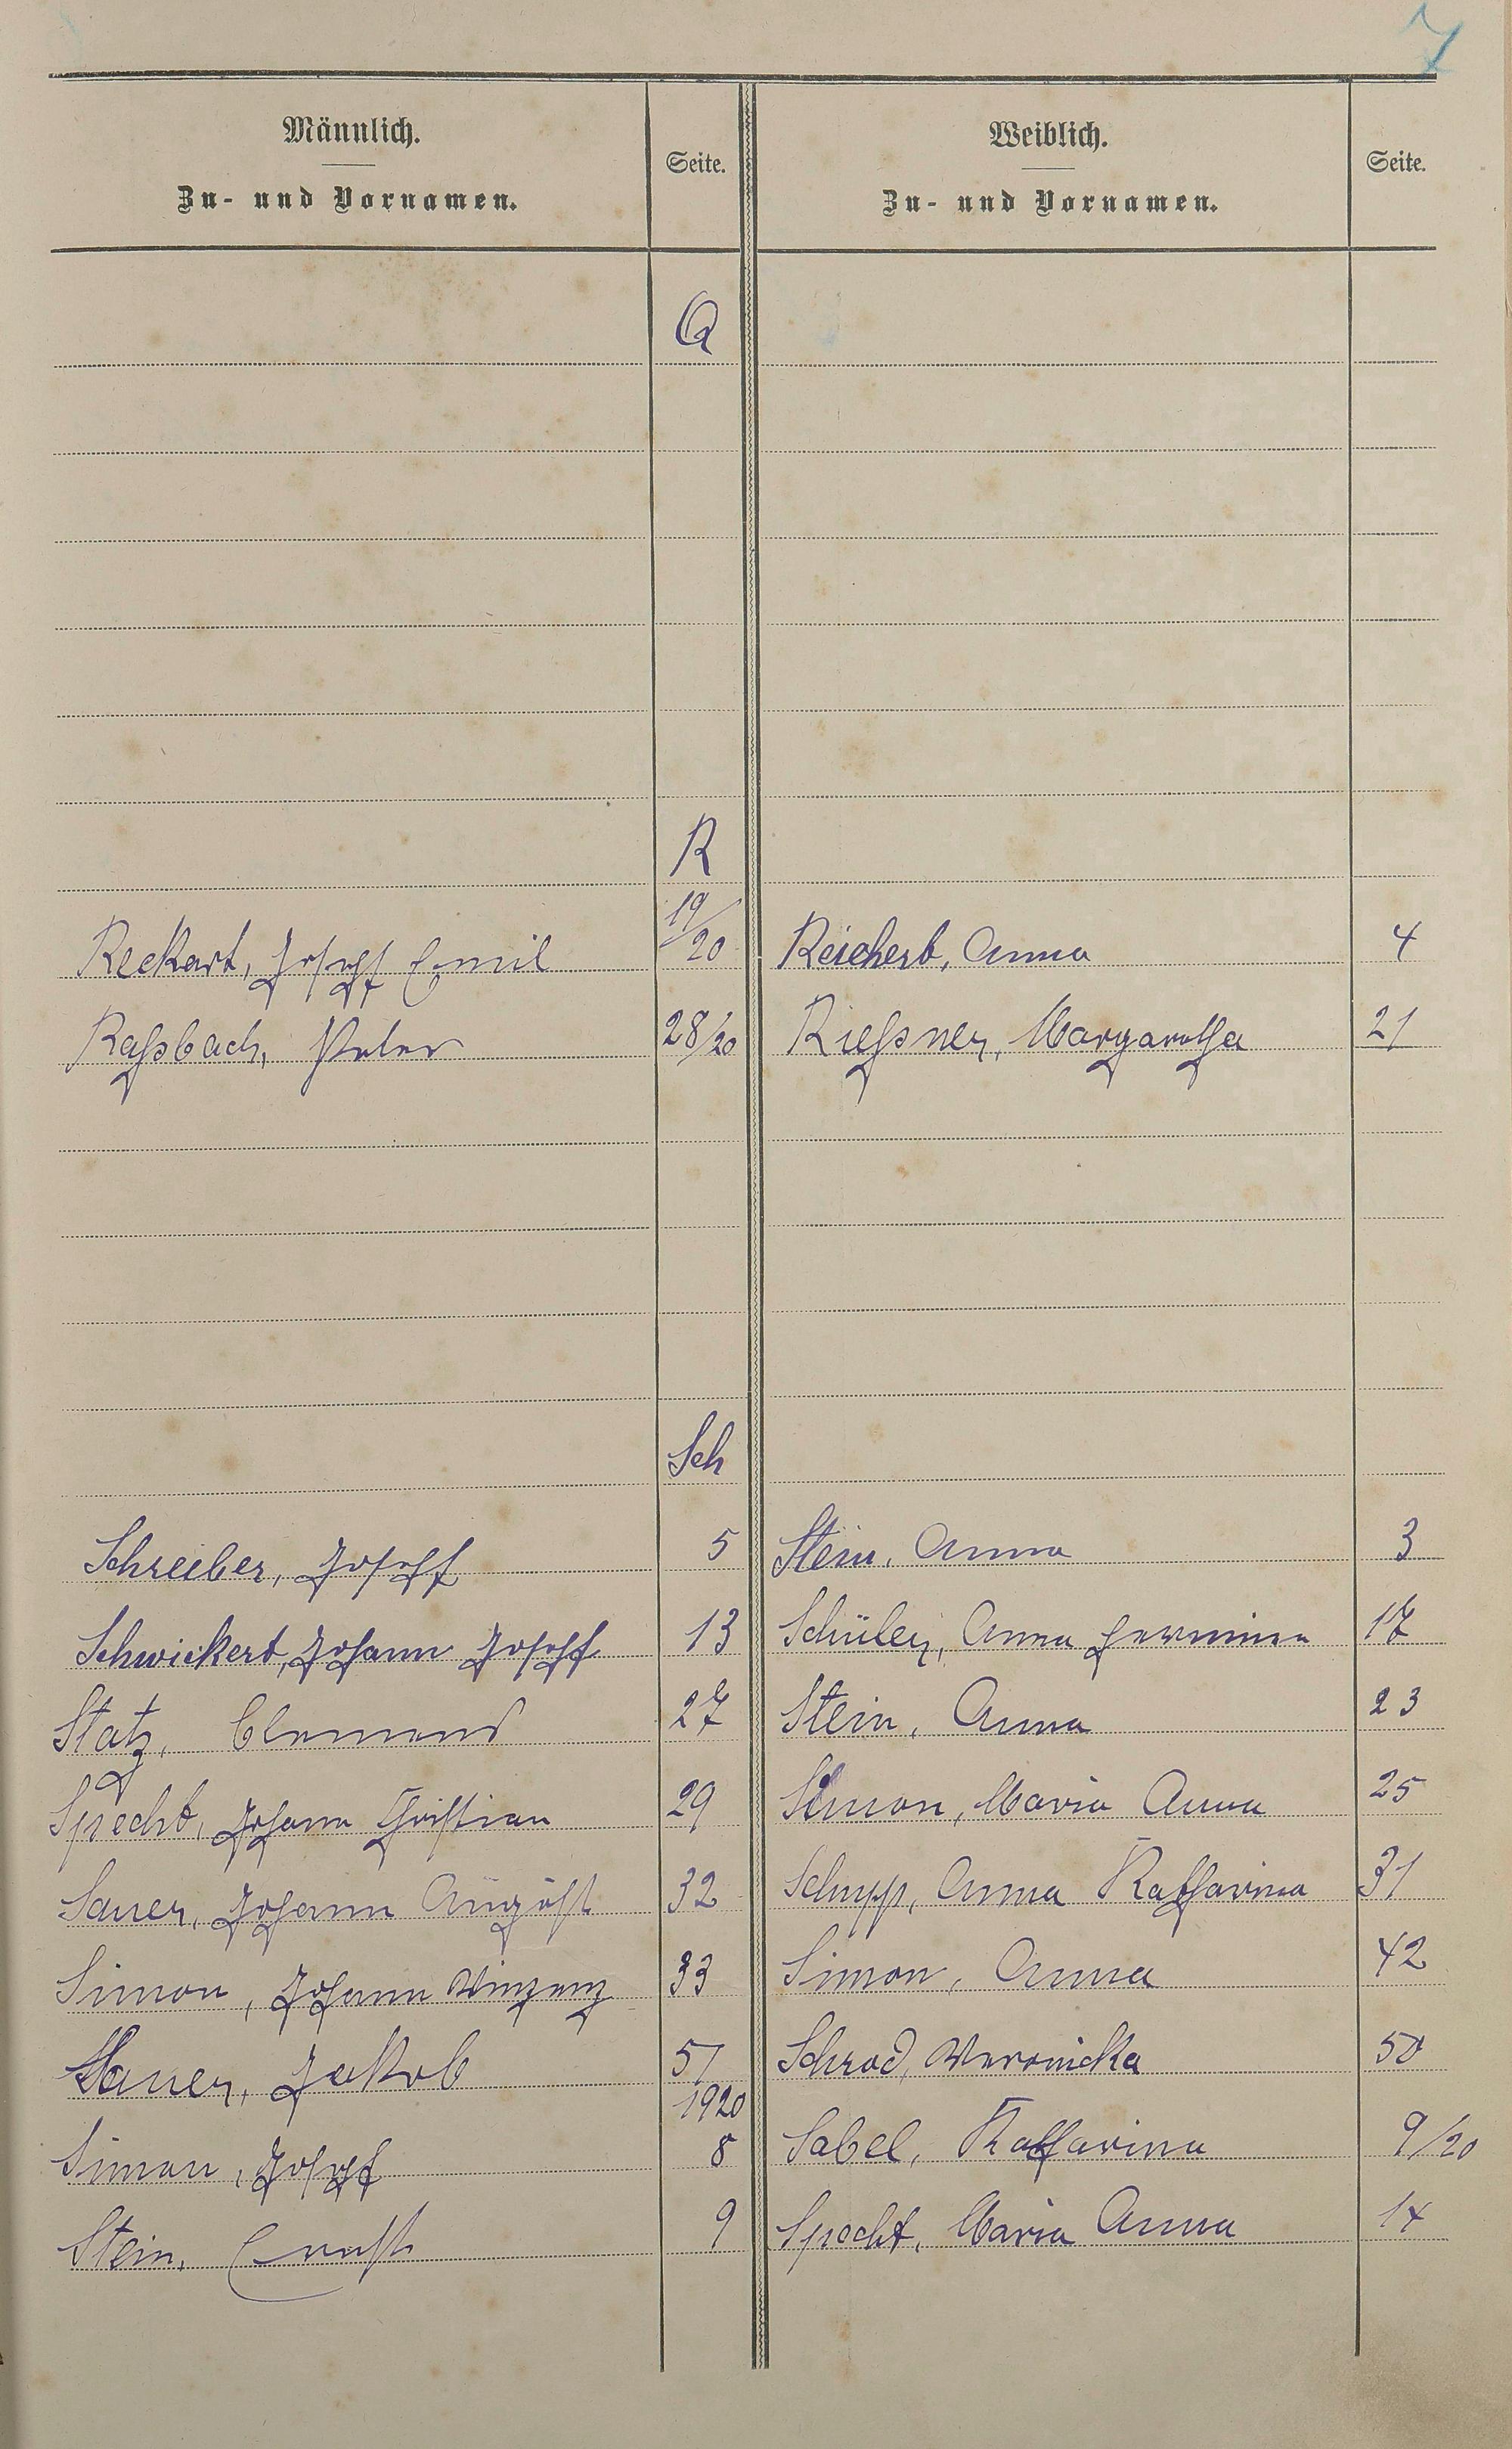 7
Männlich. Seite. Weiblich. Seite.
Zu- und Vornamen. Zu- und Vornamen.
Q
R
Reckart, Joseph Emil 19/20 Reichert, Anna 4
Raßbach, Peter 28/20 Rießner, Margaretha 21
Sch
Schreiber, Joseph 5 Stein, Anna 3
Schwickert, Johann Joseph 13 Schüler, Anna Hermina 17
Statz, Clemens 27 Stein, Anna 23
Specht, Johann Christian 29 Simon, Maria Anna 25
Sauer, Johann August 32 Schupp, Anna Katharina 31
Simon, Johann Vinzenz 33 Simon, Anna 42
Sauer, Jakob 51 Schrod, Veronicka 50
1920
Simon, Joseph 8 Sabel, Katharina 9/20
Stein, Ernst 9 Specht, Maria Anna 14